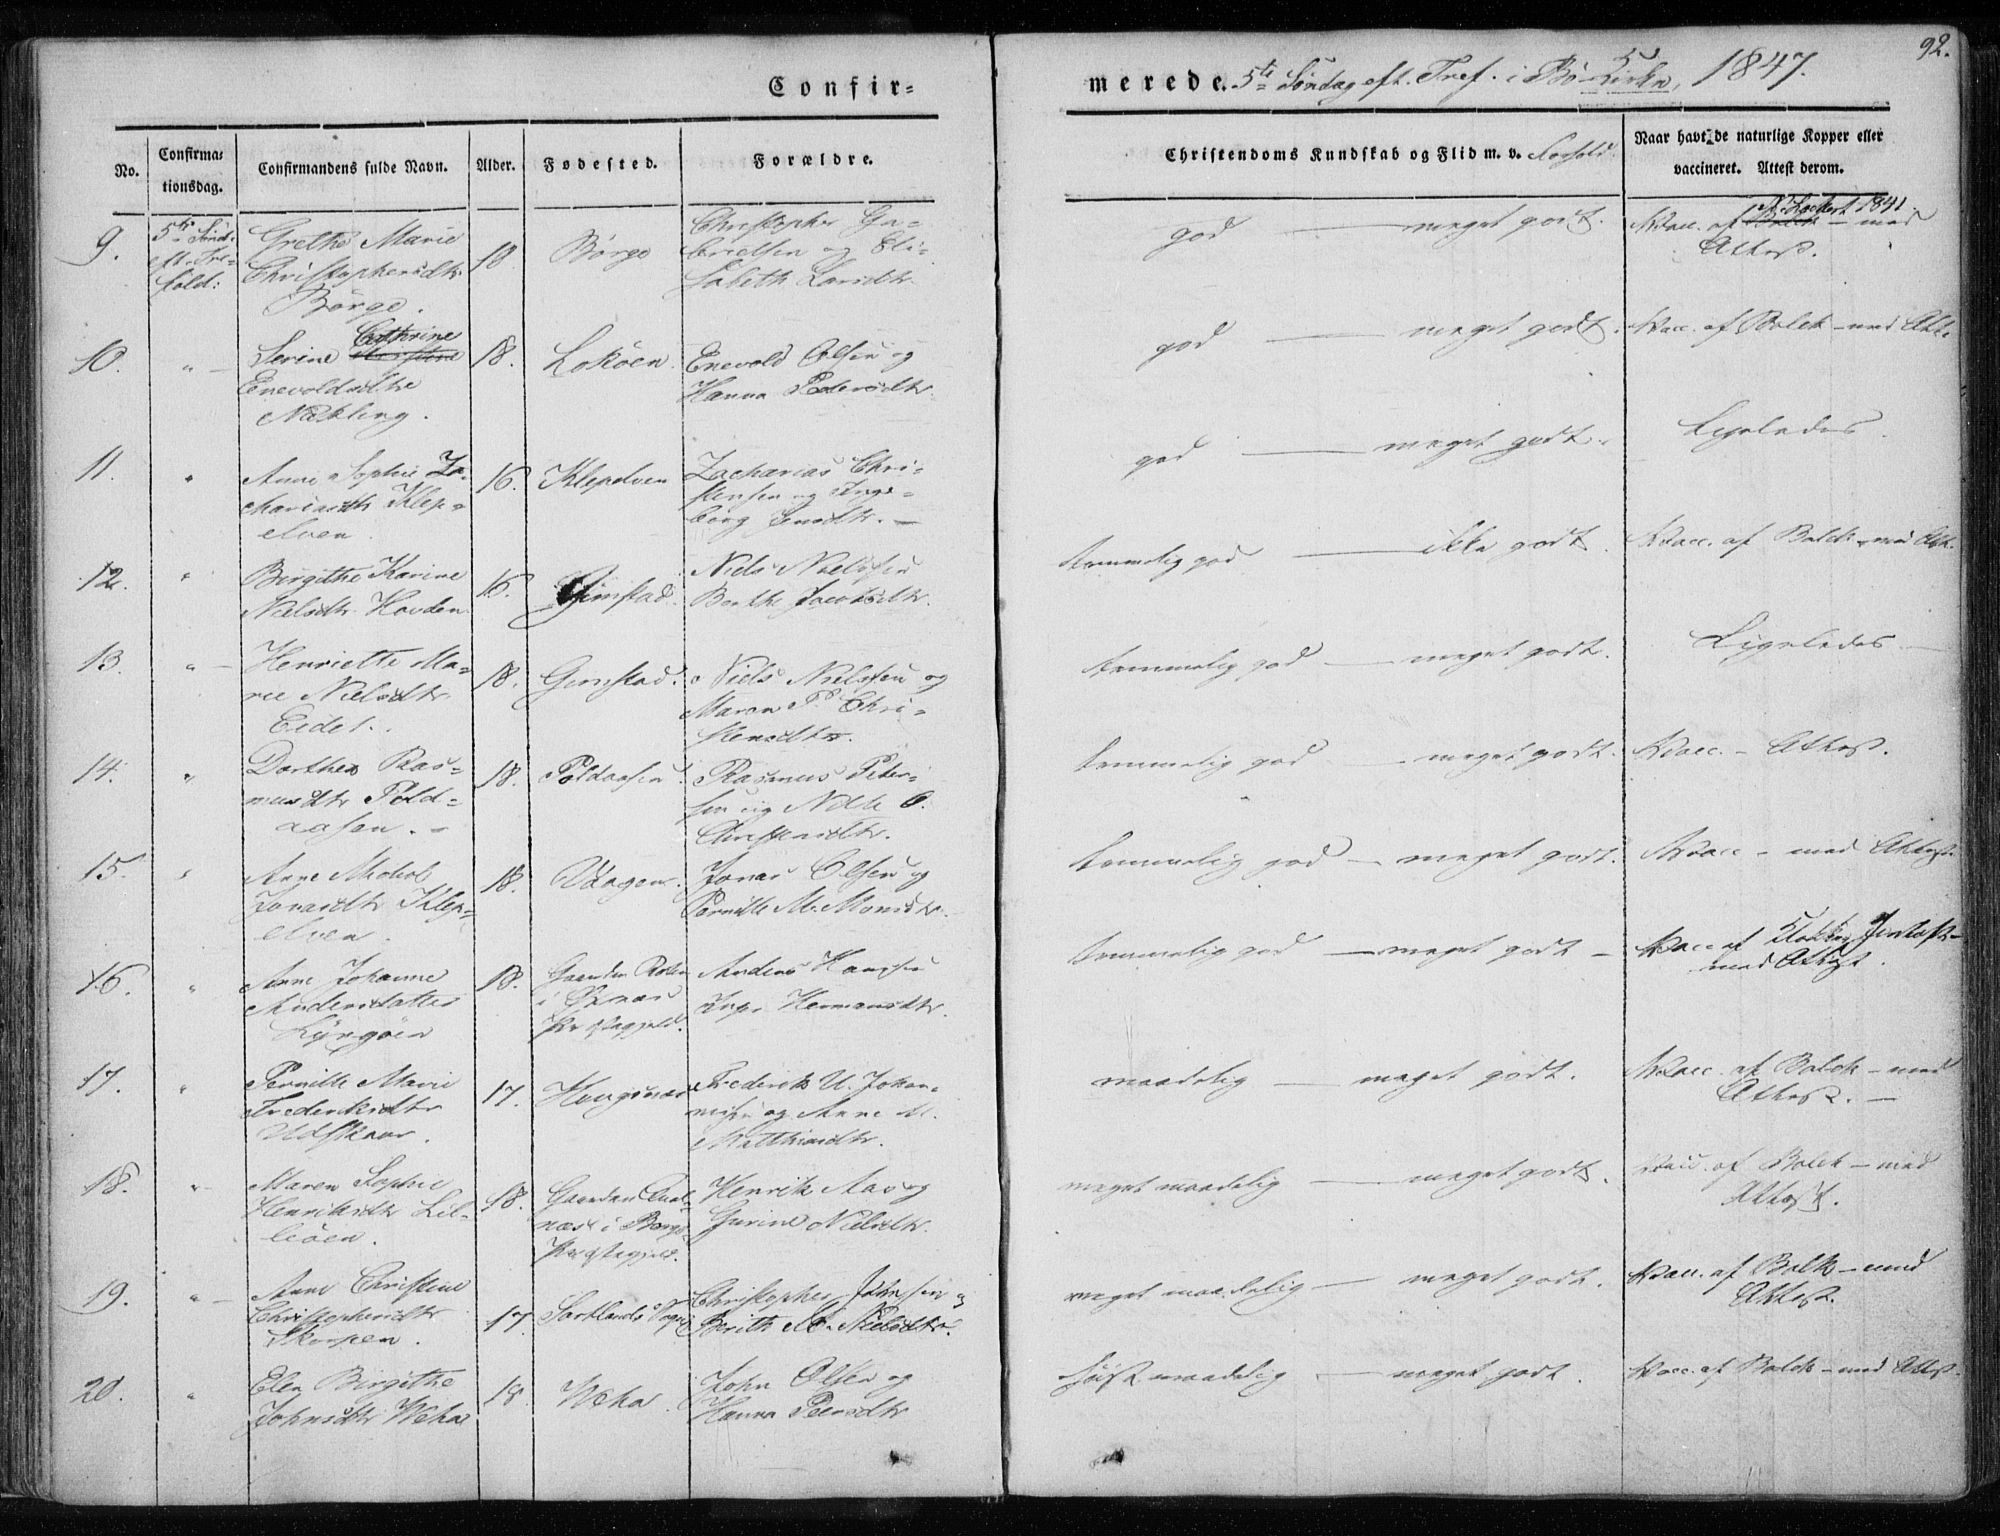 92.
Confir-
merede. 5te Søndag eft. Tref. i Bø Kirke, 1847.
No.
Confirma-
tionsdag.
Confirmandens fulde Navn.
Alder.
Fødested.
Forældre.
Christendoms Kundskab og Flid m. v. Forhold.
Naar havt de naturlige Kopper eller
vaccineret. Attest derom.
9.
5te Sønd:
eft. Tre-
fold:
Grethe Marie
Christophersdtr
Børge.
18
Børge
Christopher Ga-
brielsen og Eli-
sabeth Larsdtr.
god — meget godt.
Vacc. af 1841 – med
Attest.
10.
"
Serine Cathrine
Enevoldsdtr
Nækling.
18.
Lokøen
Enevold Olsen og
Hanna Pedersdtr.
god — meget godt.
Vacc. af Balch – med Att.
11.
"
Anne Sophie Za-
chariasdtr Klep-
elven
16.
Klepelven
Zacharias Chri-
stensen og Inge-
borg Jensdtr. —
god — meget godt.
Ligeledes.
12.
"
Birgithe Karine
Nielsdtr Hovden
16.
Gimstad.
Niels Nielsen
Berthe Jacobsdtr.
temmelig god — ikke godt.
Vacc. af Balch – med Att.
13.
"
Henriette Ma-
rie Nielsdtr
Eidet.
18.
Gimstad.
Niels Nielsen og
Maren P. Chri-
stensdtr.
temmelig god — meget godt.
Ligeledes —
14.
"
Dorthea Ras-
musdtr Pold-
aasen. –
18.
Poldaasen
Rasmus Peter-
sen og C.
Christensdtr.
temmelig god — meget godt.
Vacc. – Attest.
15.
"
Anne
Jonasdtr Klep-
elven.
18.
Vaagen.
Jonas Olsen og
Pernille M. Monsdtr.
temmelig god — meget godt.
Vacc – med Attest.
16.
"
Anne Johanne
Andersdatter
Lyngøen
18.
Gaarden
i Øxnæs
Præstegjeld.
Anders Hansen
Inger Hermansdtr.
temmelig god — meget godt –
Vacc af Klokker Jentoft –
med Attest.
17.
"
Pernille Marie
Frederiksdtr
Udskaar.
17.
Haugsnæs
Frederik U. Johan-
nesen og Anne M.
Matthiasdtr.
maadelig — meget godt.
Vacc. af Balch – med
Attest. —
18.
"
Maren Sophie
Henriksdtr Lil-
leøen.
18.
Gaarden
næs i Borge
Præstegjeld.
Henrik Aas og
Gurine Nielsdtr.
meget maadelig — meget godt.
Vacc. af Balch – med
Attest.
19.
"
Anne Christine
Christophersdtr
Skorpen.
17
Sortlands Sogn
Christopher Johnsen og
Berith M. Nielsdtr.
meget maadelig — meget godt.
Vacc. af Balch – med
Attest.
20.
"
Elen Birgithe
Johnsdtr Wehn
18
Wehn.
John Olsen og
Hanna Peersdtr
høist maadelig — meget godt.
Vacc. af Balch – med Attest.